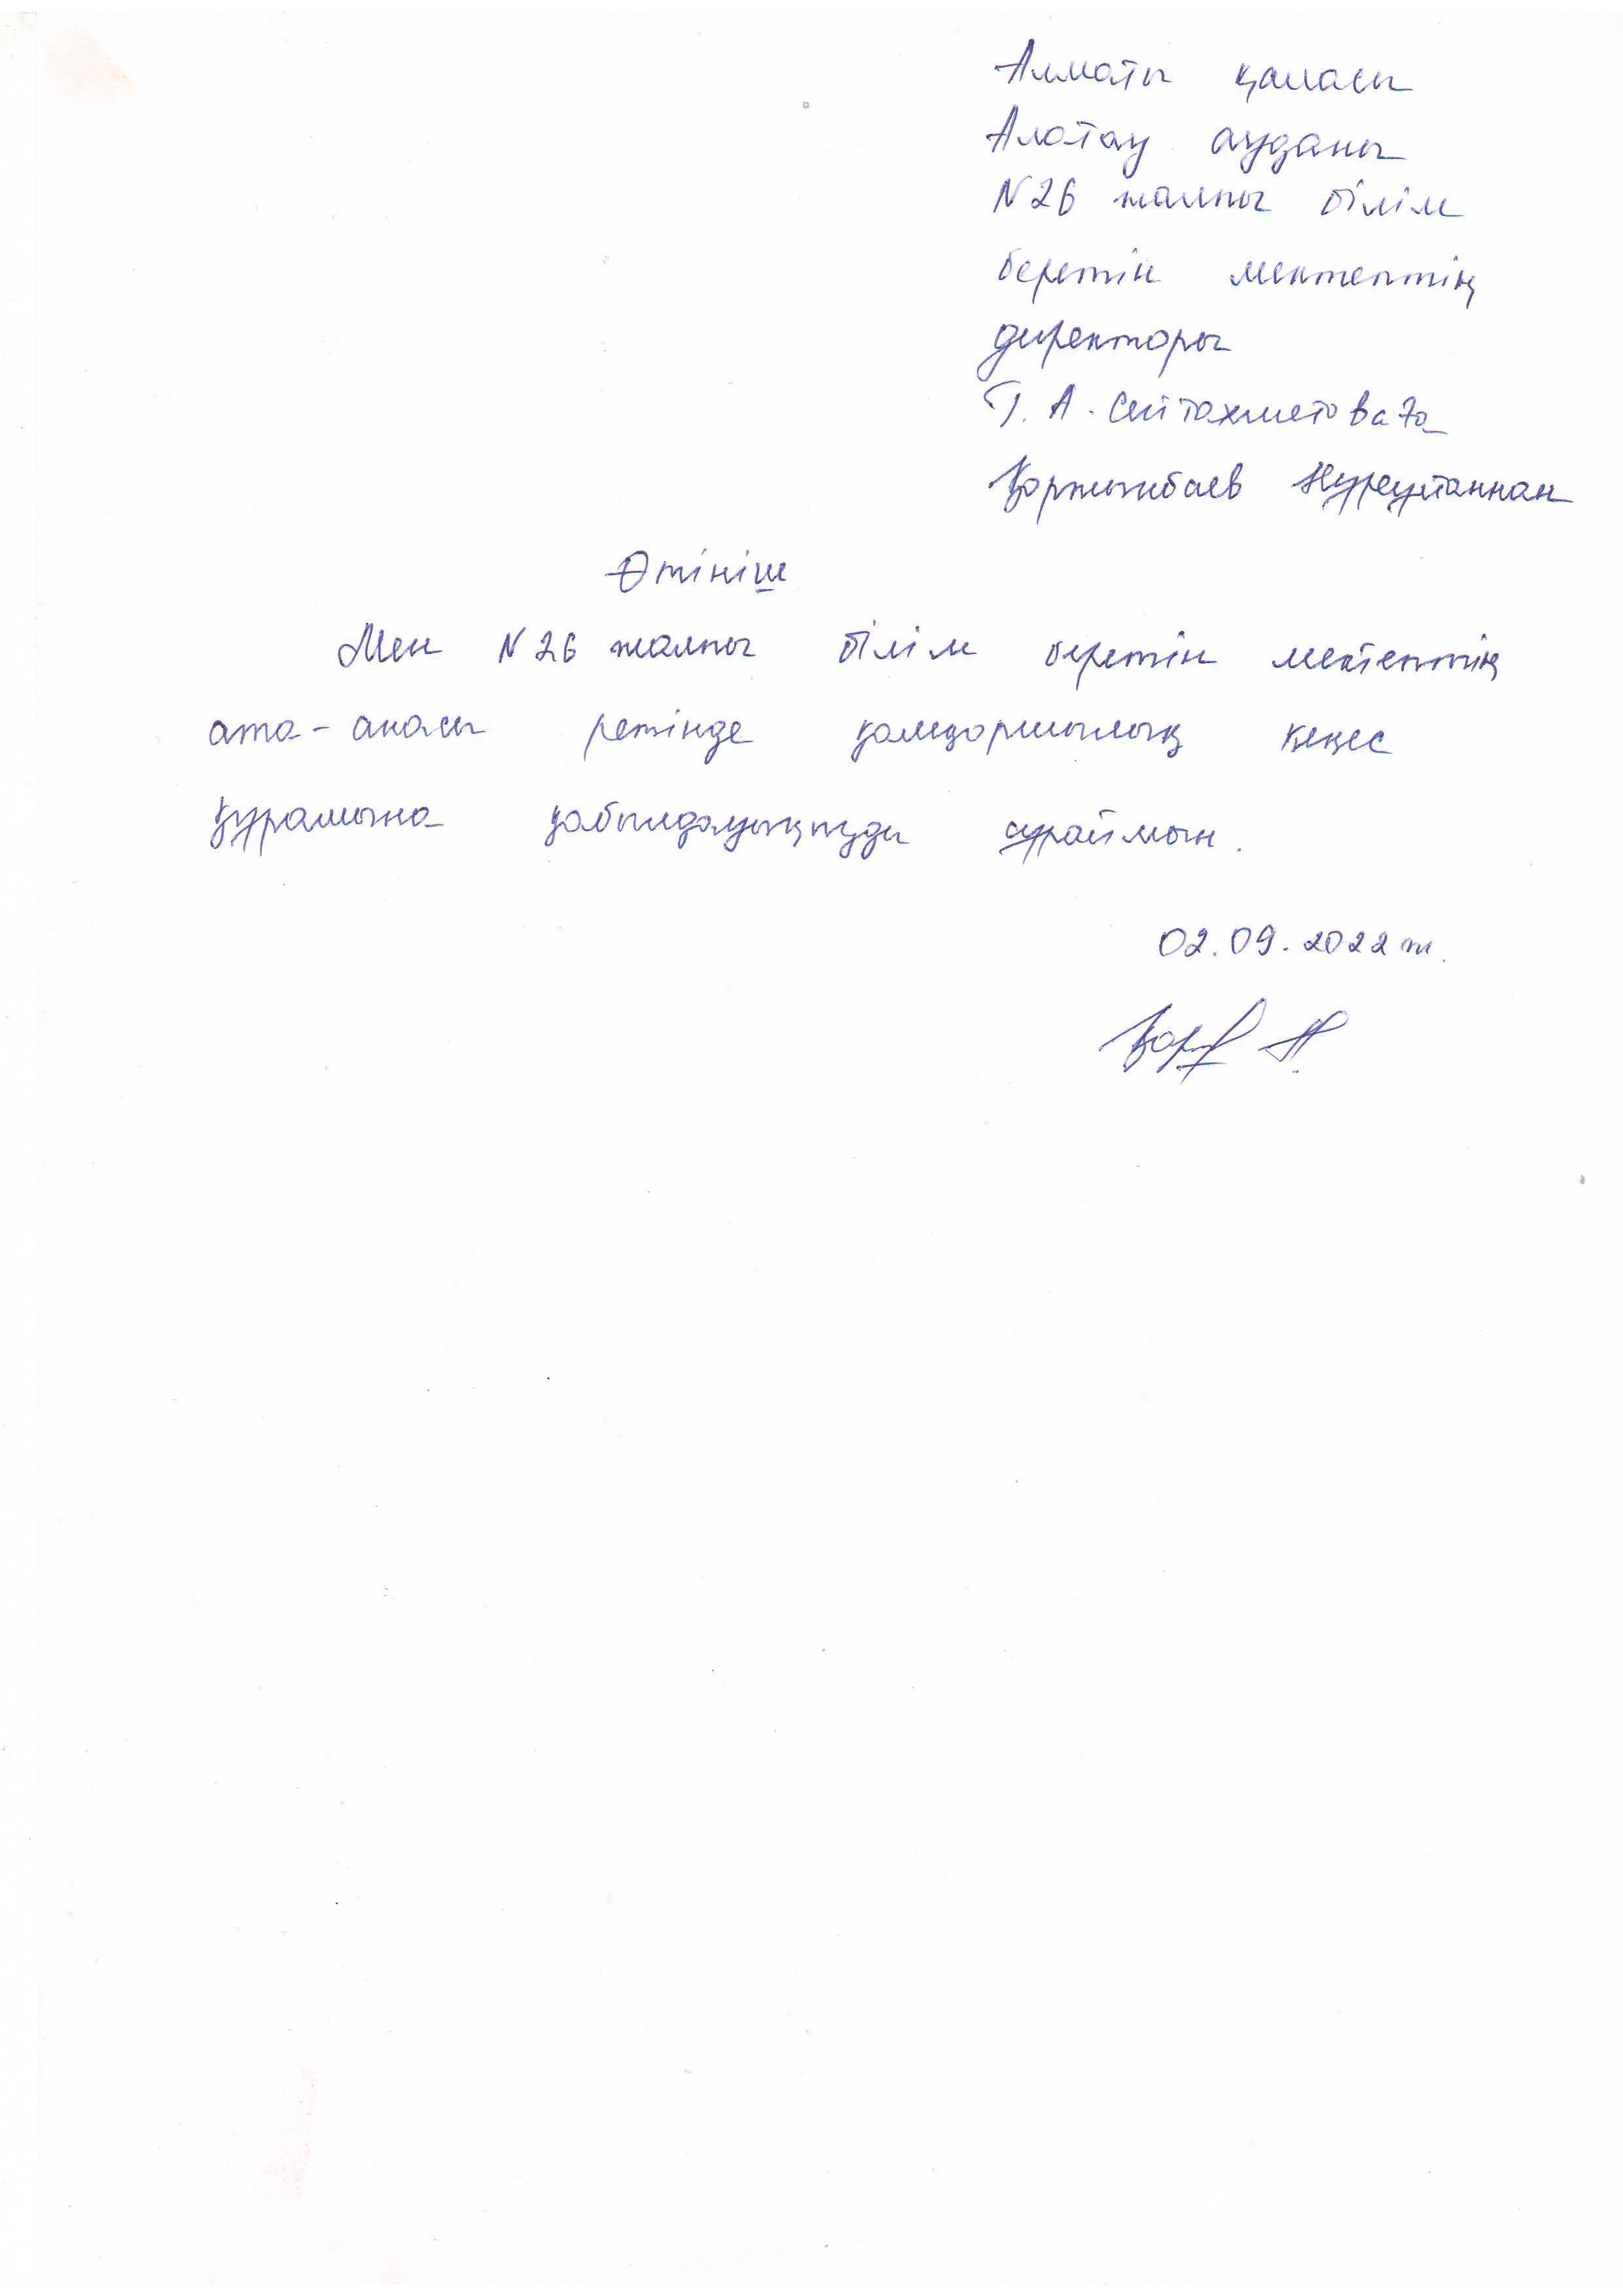 Алматы қаласы
Алатау ауданы
N26 жалпы білім
беретін мектептің
директоры
Г. А. Сейтахметоваға
Қоржынбаев Нұрсұлтаннан
Өтініш
Мен N26 жалпы білім беретін мектептің
ата-анасы ретінде қамқоршылық кеңес
құрамына қабылдауыңызды сұраймын.
02.09.2022 ж.